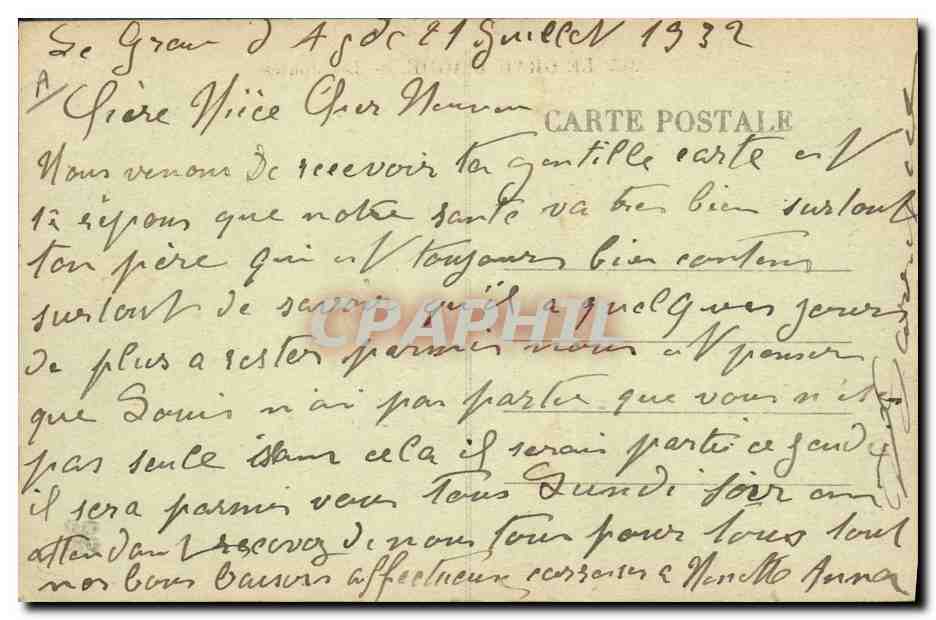 Le Grau d Agde 21 Juillet 1932
A
Chère Nièce Cher Neuveu
CARTE POSTALE
Nous venons De recevoir ta gentille carte et
te répons que notre santé va tres bien surtout
ton père qui est toujours bien contens
surtout de savoir qu'il a quelques jours
de plus a rester parmis nous et penser
que Louis n'ai pas partie que vous n'êt
pas seule sans cela il serais partie ce jeudi
il sera parmis vous tous Lundi soir en
attendant recevoz de nous tous pour tous tout
nos bons baisers affectueux carresses a Nenette Anna
CPAPHIL